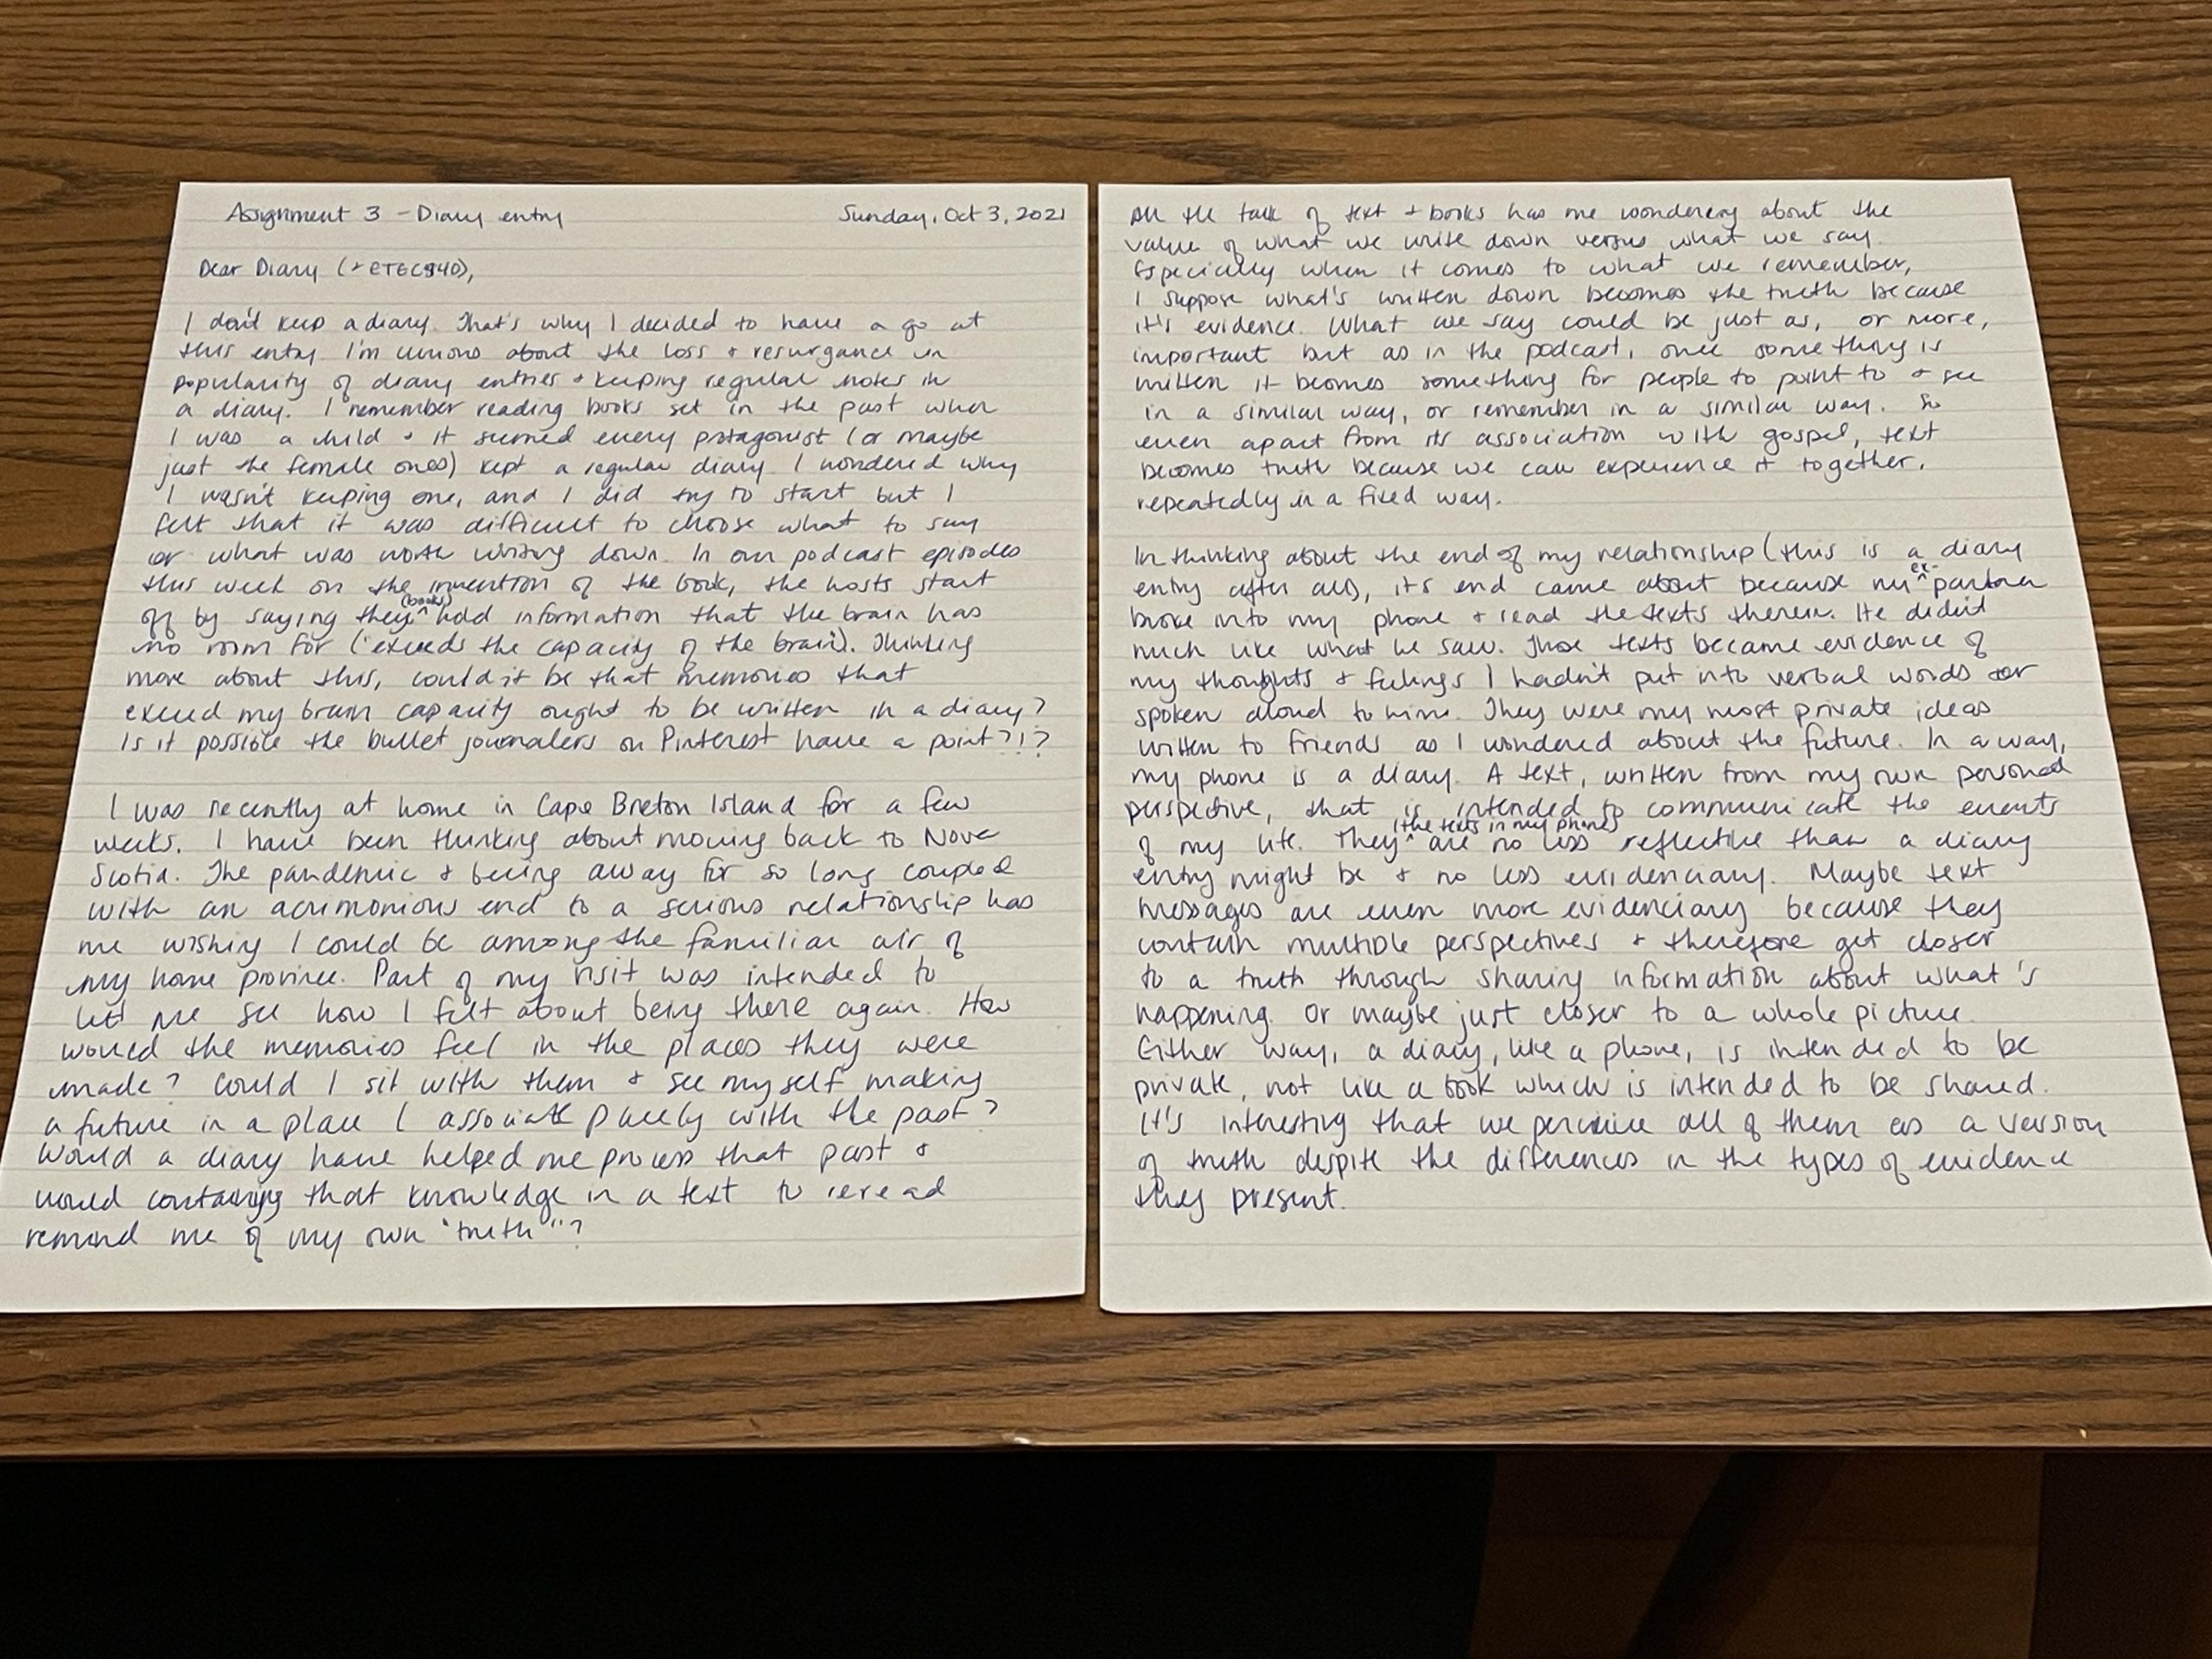 Assignment 3 - Diary entry Sunday, Oct 3, 2021
Dear Diary (+ ETEC540),
I don't keep a diary. That's why I decided to have a go at
this entry. I'm curious about the loss + resurgance in
popularity of diary entries + keeping regular notes in
a diary. I remember reading books set in the past when
I was a child + it seemed every protagonist (or maybe
just the female ones) kept a regular diary. I wondered why
I wasn't keeping one, and I did try to start but I
felt that it was difficult to choose what to say
or what was worth writing down. In our podcast episodes
this week on the invention of the book, the hosts start
off by saying they (books) hold information that the brain has
no room for ('exceeds the capacity of the brain'). Thinking
more about this, could it be that memories that
exceed my brain capacity ought to be written in a diary?
Is it possible the bullet journalers on Pinterest have a point?!?
I was recently at home in Cape Breton Island for a few
weeks. I have been thinking about moving back to Nova
Scotia. The pandemic + being away for so long coupled
with an acrimonious end to a serious relationship has
me wishing I could be among the familiar air of
my home province. Part of my visit was intended to
let me see how I felt about being there again. How
would the memories feel in the places they were
made? Could I sit with them + see myself making
a future in a place I associate purely with the past?
Would a diary have helped me process that past +
would containing that knowledge in a text to reread
remind me of my own "truth"?
All the talk of text + books has me wondering about the
value of what we write down versus what we say.
Especially when it comes to what we remember,
I suppose what's written down becomes the truth because
it's evidence. What we say could be just as, or more,
important but as in the podcast, once something is
written it becomes something for people to point to + see
in a similar way, or remember in a similar way. So
even apart from its association with gospel, text
becomes truth because we can experience it together,
repeatedly in a fixed way.
In thinking about the end of my relationship (this is a diary
entry after all), it's end came about because my ex-partner
broke into my phone + read the texts therein. He didn't
much like what he saw. Those texts became evidence of
my thoughts + feelings I hadn't put into verbal words or
spoken aloud to him. They were my most private ideas
written to friends as I wondered about the future. In a way,
my phone is a diary. A text, written from my own personal
perspective, that is intended to communicate the events
of my life. They (the texts in my phone) are no less reflective than a diary
entry might be + no less evidenciary. Maybe text
messages are even more evidenciary because they
contain multiple perspectives + therefore get closer
to a truth through sharing information about what's
happening. Or maybe just closer to a whole picture.
Either way, a diary, like a phone, is intended to be
private, not like a book which is intended to be shared.
It's interesting that we perceive all of them as a version
of truth despite the differences in the types of evidence
they present.